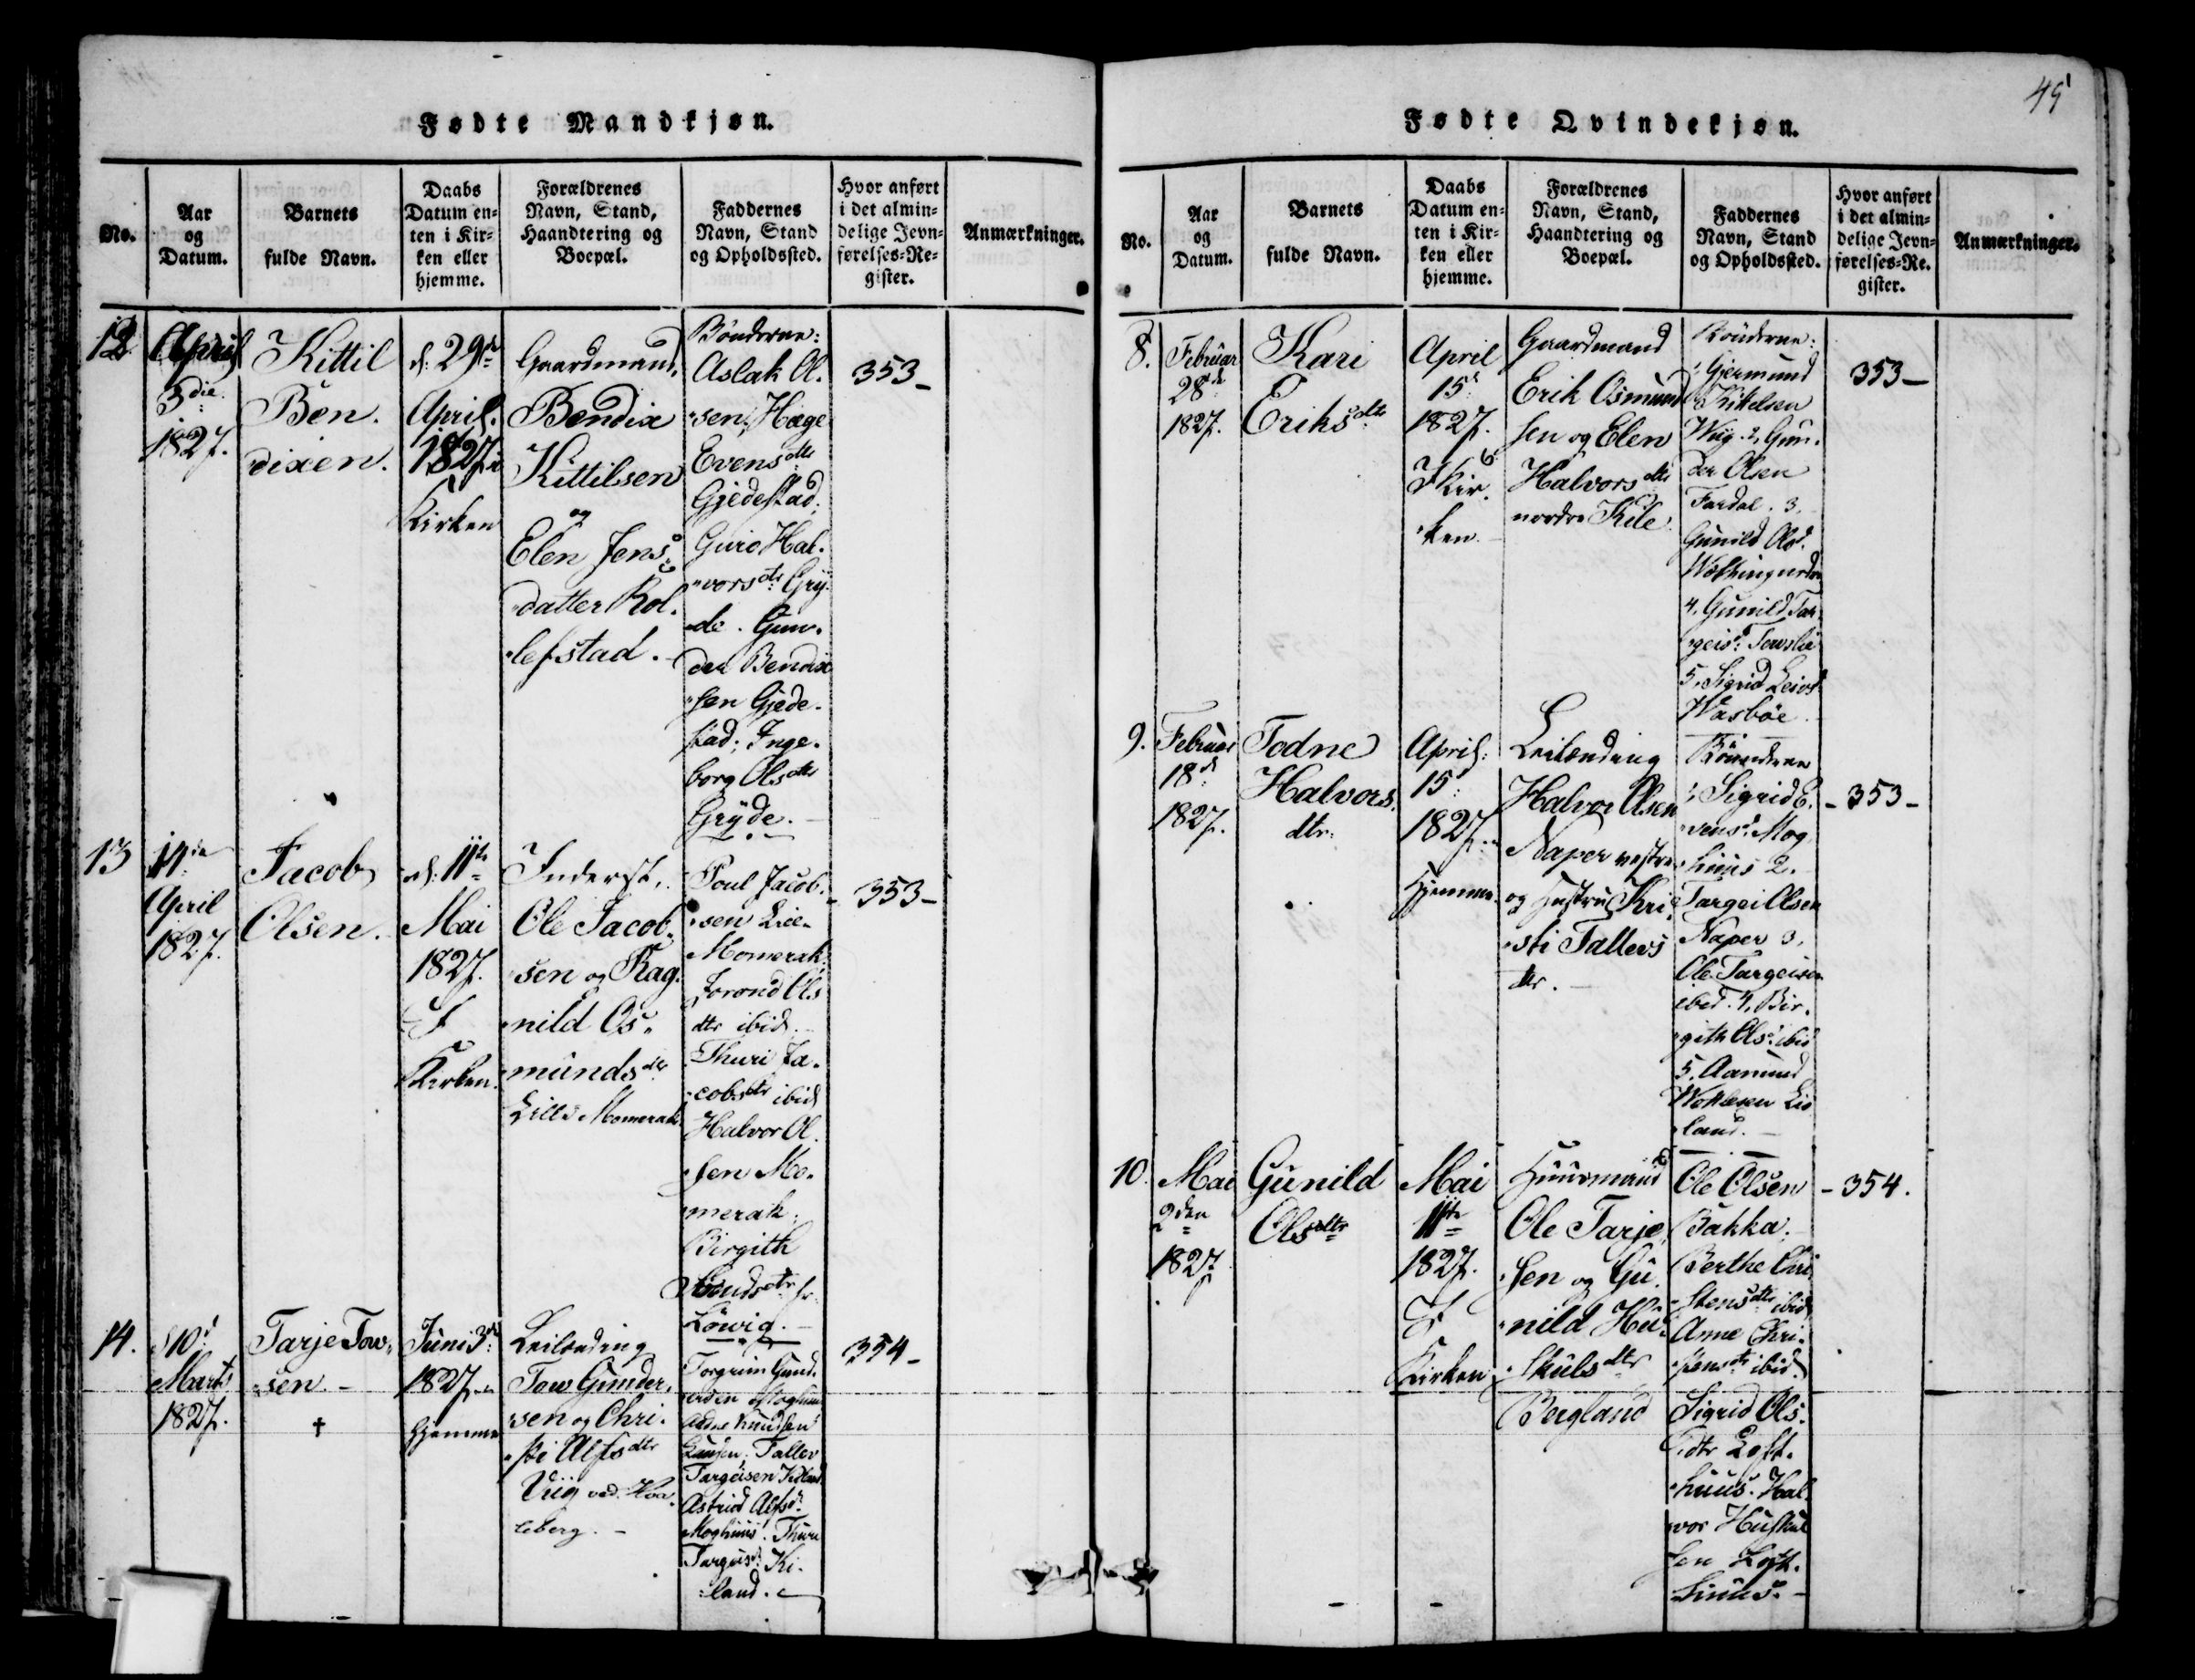 Fødte Mandkjøn.
No.
Aar
og
Datum.
Barnets
fulde Navn.
Daabs
Datum en-
ten i Kir-
ken eller
hjemme.
Forældrenes
Navn, Stand,
Haandtering og
Boepæl.
Faddernes
Navn, Stand
og Opholdssted.
Hvor anført
i det almin-
delige Jevn-
førelses-Re-
gister.
Anmærkninger.
12
April
3die
1827.
Kittil
Ben.
dixen.
d. 29de
April.
1827. i
Kirken
Gaardmand.
Bendix
Kittilsen
og
Elen Jens
datter Rol.
lefstad.
Bönderne:
Aslak Ol.
sen, Hæge
Evensdtr
Gjedestad;
Guro Hal.
vorsdtr Gry
de. Gun.
der Bendix
sen Gjede.
stad; Inge.
borg Olsdtr
Gryde.
353
13
11te
April
1827.
Jacob
Olsen.
d. 11te
Mai
1827.
I
Kirken.
Inderst.
Ole Jacob.
sen og Rag.
nild Os.
mundsdtr
Lille Momerak
Poul Jacob.
sen Lille
Momerak.
Jorond Ols
dtr ibid.
Thuri Ja.
cobsdtr ibid
Halvor Ol.
sen Mo.
merak.
Birgith
Löwig.
353
14.
10d
Marts
1827.
Tarje Tow.
sen.
†
Juni 3de
1827.
hjemme
Leilænding
Tow Gunder.
sen og Chri.
sti Alfsdtr
Viig ved
Torgrim Gund.
Moghuus
Knudsen
Taller
Targeisen
Astrid Alfsd.
Moghuus. Thure
Targeisd. Ki.
land.
354
45
Fødte Qvindekjøn.
No.
Aar
og
Datum.
Barnets
fulde Navn.
Daabs
Datum en-
ten i Kir-
ken eller
hjemme.
Forældrenes
Navn, Stand,
Haandtering og
Boepæl.
Faddernes
Navn, Stand
og Opholdssted.
Hvor anført
i det almin-
delige Jevn-
førelses-Re-
gister.
Anmærkninger.
8.
Februar
28de
1827.
Kari
Eriksdtr
April
15
1827.
I Kir.
ken.
Gaardmand
Erik Osmund
sen og Elen
Halvorsdtr
nordre Kile
Bönderne:
Gjermund
Kittelsen
Wiig. 2, Gun.
der Olsen
Fardal. 3.
Gunild Olsd.
4, Gunild Tar
geisd.
5, Sigrid
Wasböe.
353
9.
Februar
18de
1827.
Todne
Halvors.
dtr.
April.
15
1827.
Hjemme
Leilænding
Halvor Olsen
Naper vestre
og Hustru Kri
sti Tallevs
dtr.
Bönderne
1, Sigrid E.
vensd. Mog
huus 2.
Targei Olsen
Naper 3,
Ole Targeisen
ibid. 4, Bir.
gith Olsd. ibid
5, Aamund
land.
353
10.
Mai
2den
1827
Gunild
Olsdtr
Mai
11te
1827.
I
Kirken
Huusmand
Ole Tarje
sen og Gu.
nild Hu
skulsdtr
Bergland
Ole Olsen
Bakka.
Berthe Chri
stensdtr ibid
Anne Chri.
stensdtr ibid.
Sigrid Ols.
dtr Loft.
huus. Hal
vor Huskul
sen Loft.
huus.
354.